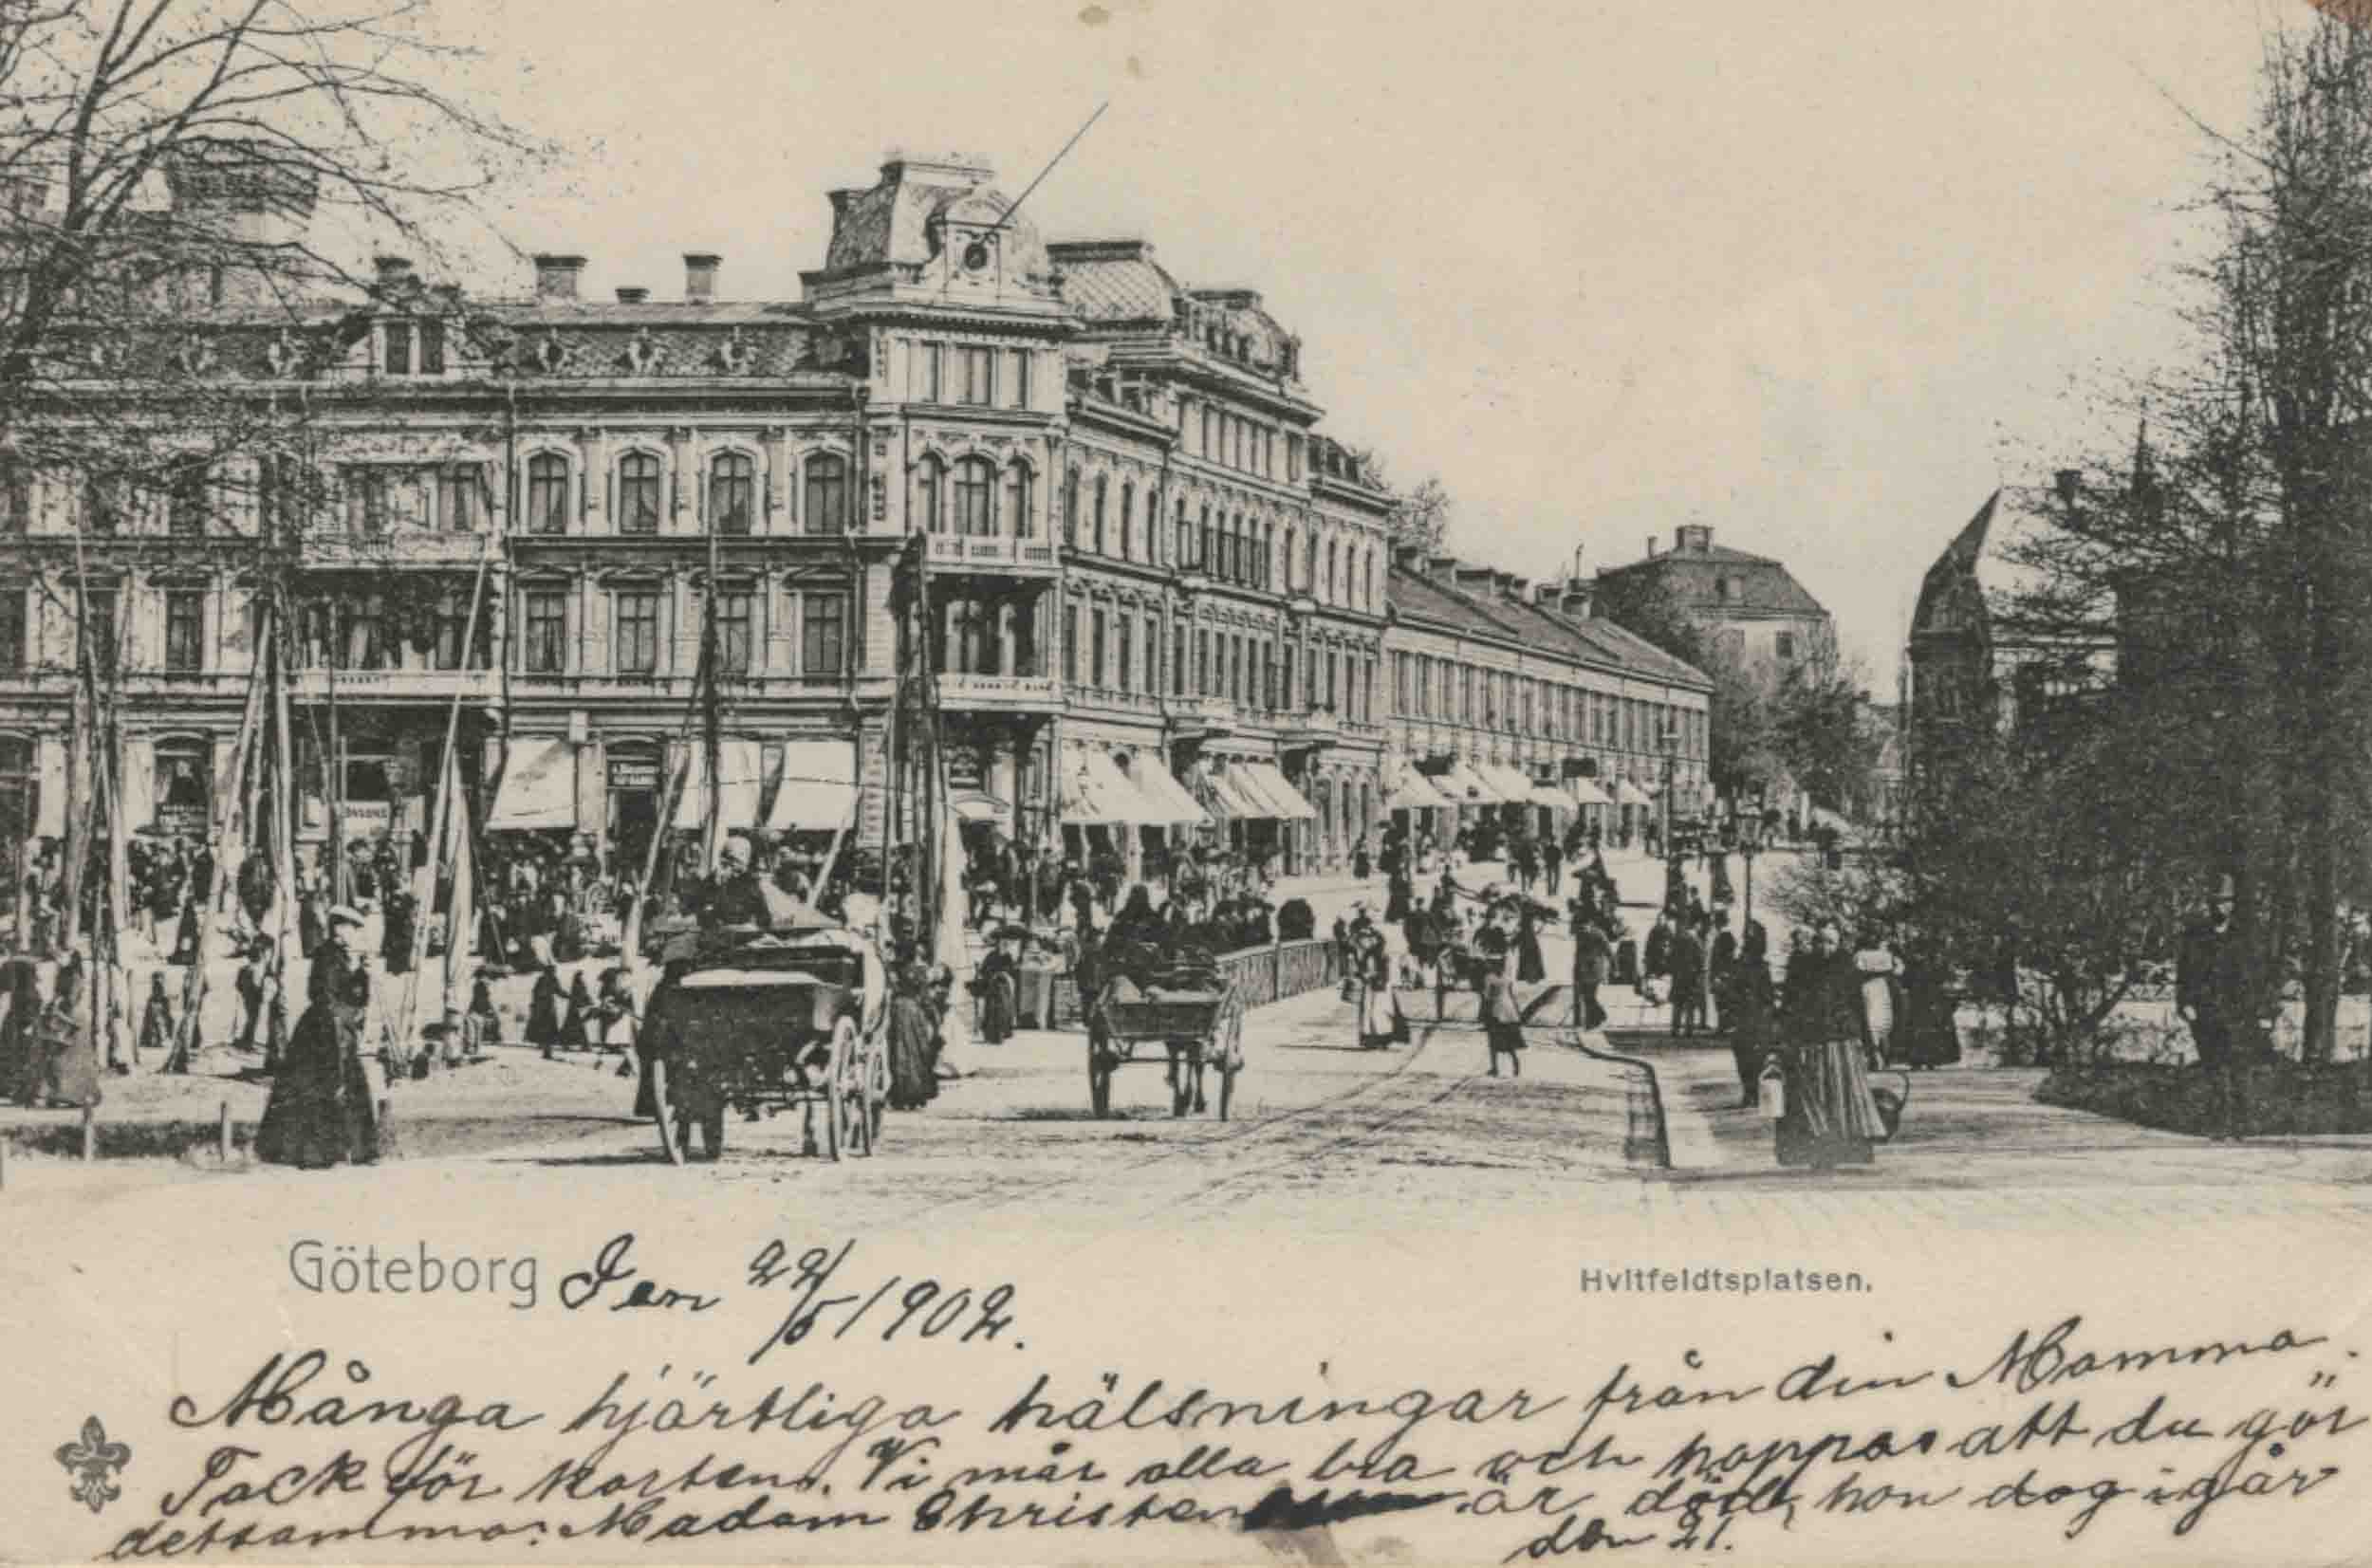 Göteborg den 22/5 1902.
Hvitfeldtsplatsen.
Många hjärtliga hälsningar från din Mamma.
Tack för korten. Vi mår alla bra och hoppas att du gör
detsamma. Madam Christen är död, hon dog igår
den 21.